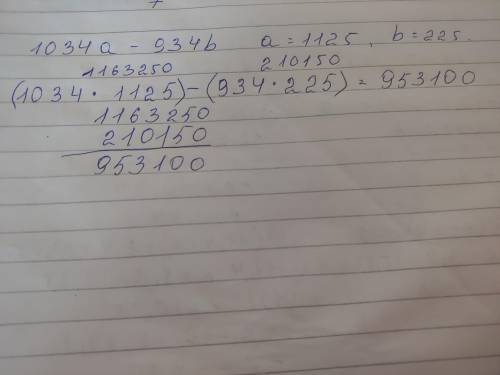 1034a - 934b a = 1125, b = 225.
1163250 210150
(1034 · 1125) - (934 · 225) = 953100
1163250
210150
953100